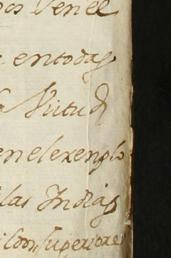 pos Ven el
en todas
Virtud
en el exemplo
las Indias
Con, superiores